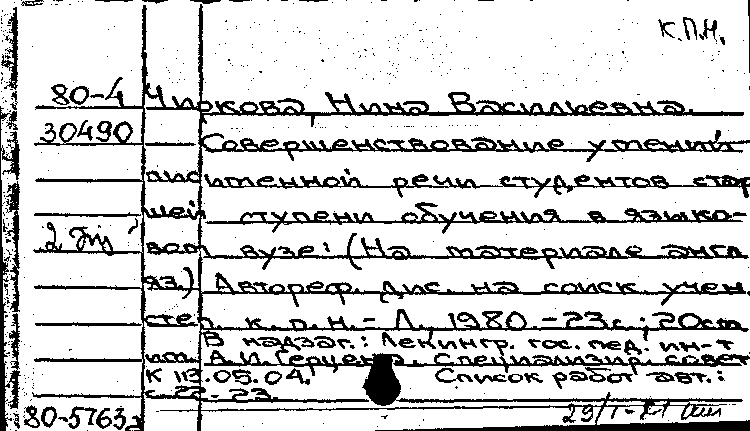 К.П.Н.
80-4 Чиркова, Нина Васильевна.
30490 Совершенствование умений
письменной речи студентов стар
шей ступени обучения в языко-
2 вом вузе: (На материале англ
яз.) Автореф. дис. на соиск. учен.
степ. к. п. н. - Л., 1980. - 23с.; 20см
В надзаг.: Ленингр. гос. пед. ин-т
им. А.И. Герцена. Специализир. совет
К 113.05.04. Список работ авт.:
с. 22-23.
80-5763 29/I-81